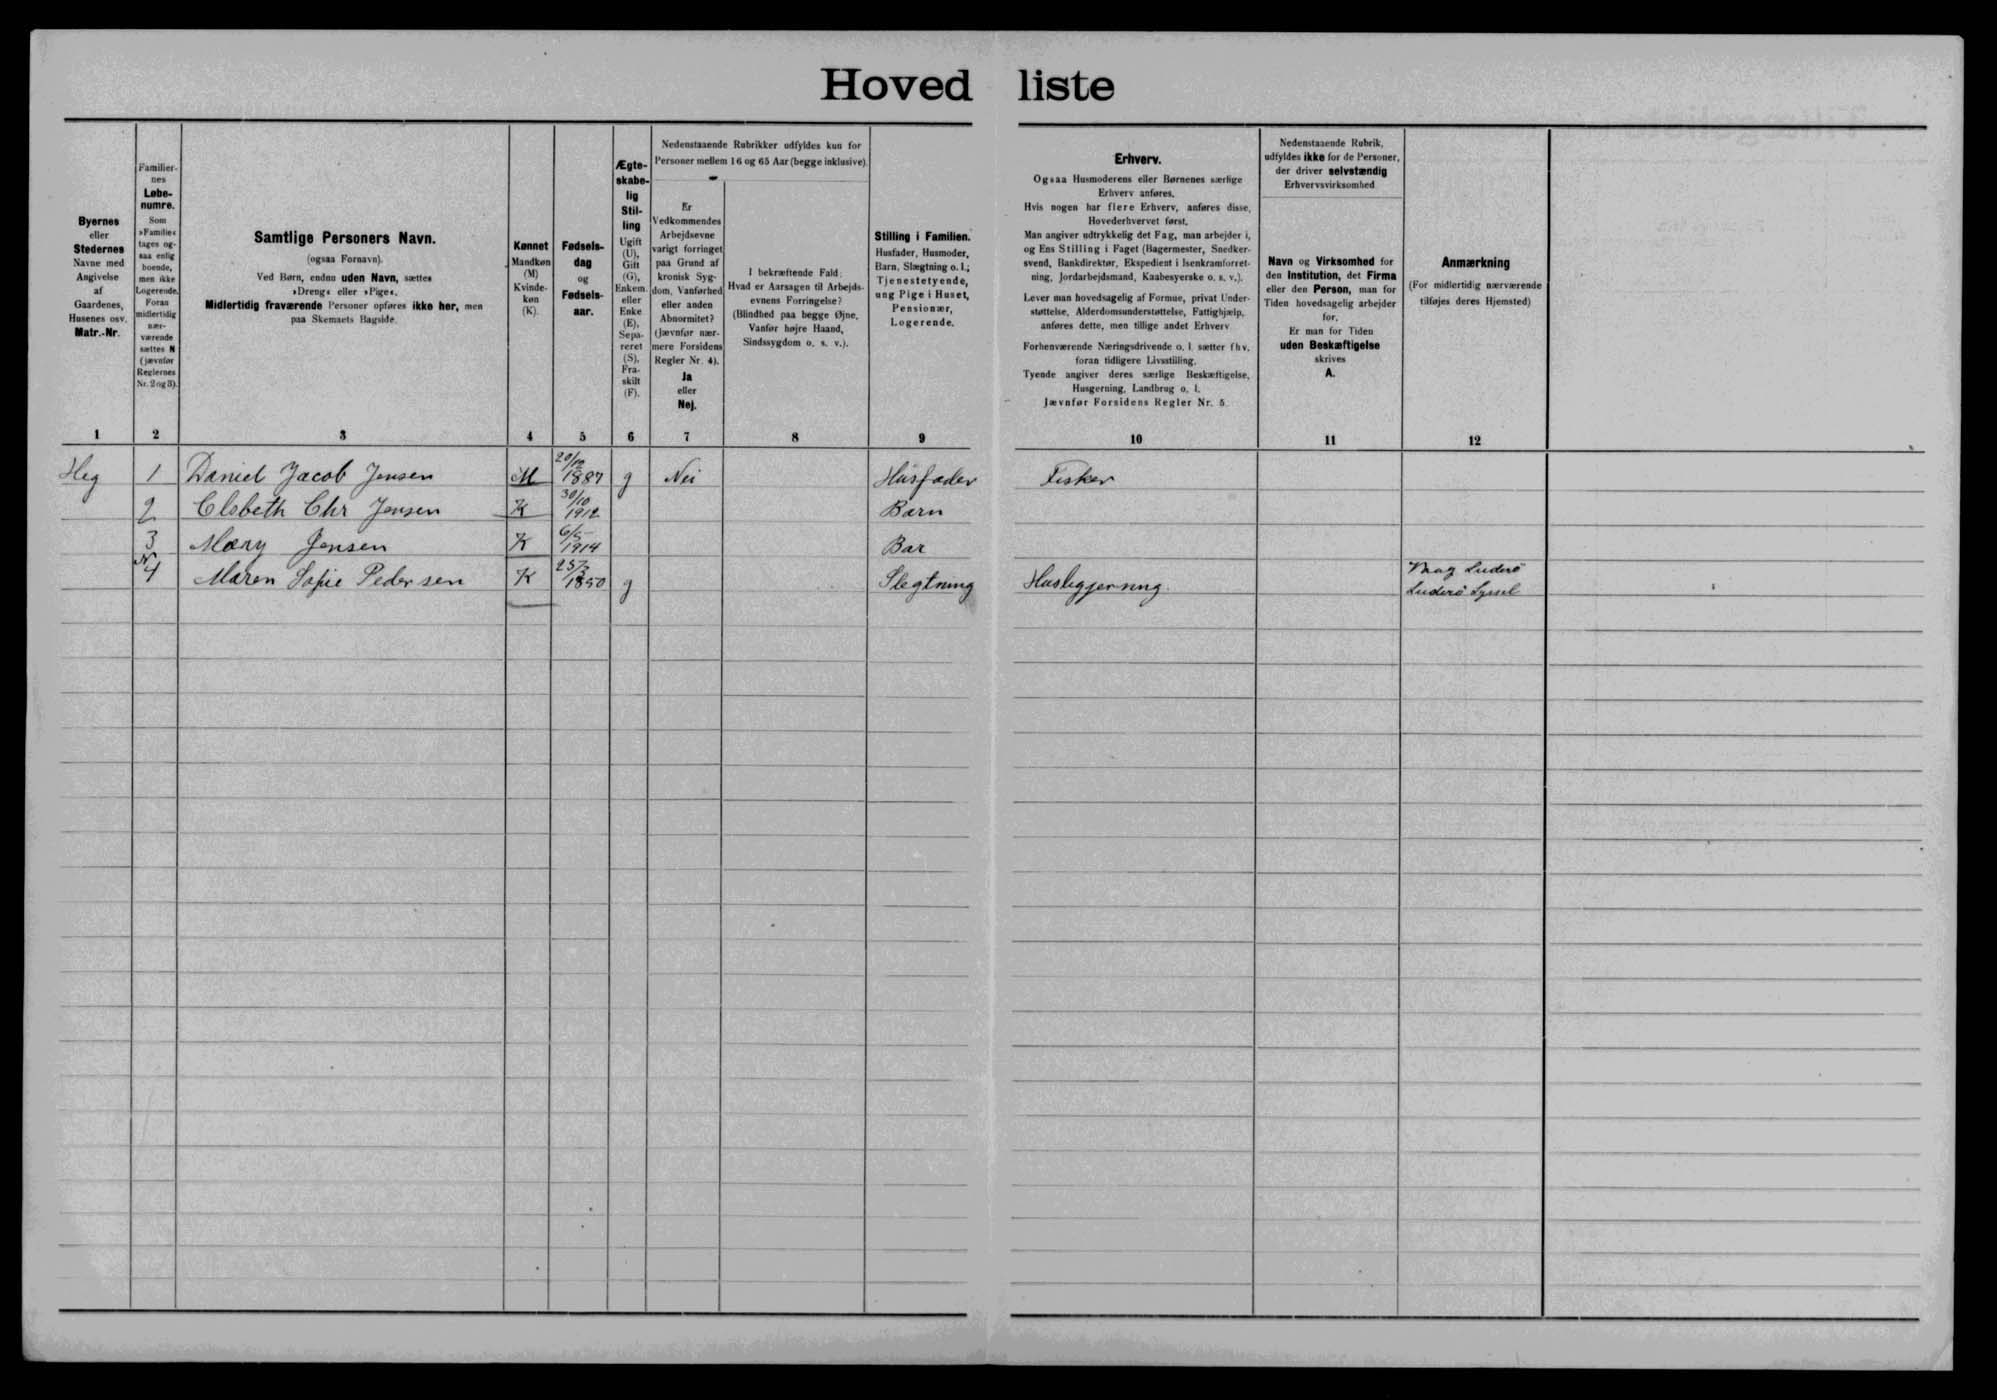 Hovedliste
Byernes
eller
Stedernes
Navne med
Angivelse
af
Gaardenes,
Husenes osv.
Matr.-Nr.
1
Familier-
nes
Løbe-
numre.
Som
»Familie«
tages og-
saa enlig
boende,
men ikke
Logerende.
Foran
midlertidig
nær-
værende
sættes N
(jævnfør
Reglernes
Nr. 2 og 3).
2
Samtlige Personers Navn.
(ogsaa Fornavn).
Ved Børn, endnu uden Navn, sættes
»Dreng« eller »Pige«.
Midlertidig fraværende Personer opføres ikke her, men
paa Skemaets Bagside.
3
Kønnet
Mandkøn
(M)
Kvinde-
køn
(K).
4
Fødsels-
dag
og
Fødsels-
aar.
5
Ægte-
skabe-
lig
Stil-
ling
Ugift
(U),
Gift
(G),
Enkem.
eller
Enke
(E),
Sepa-
reret
(S),
Fra-
skilt
(F).
6
Nedenstaaende Rubrikker udfyldes kun for
Personer mellem 16 og 65 Aar (begge inklusive).
Er
Vedkommendes
Arbejdsevne
varigt forringet
paa Grund af
kronisk Syg-
dom, Vanførhed
eller anden
Abnormitet?
(Jævnfør nær-
mere Forsidens
Regler Nr. 4).
Ja
eller
Nej.
7
I bekræftende Fald:
Hvad er Aarsagen til Arbejds-
evnens Forringelse?
(Blindhed paa begge Øjne,
Vanfør højre Haand,
Sindssygdom o. s. v.).
8
Stilling i Familien.
Husfader, Husmoder,
Barn, Slægtning o. l.;
Tjenestetyende,
ung Pige i Huset,
Pensionær,
Logerende.
9
Erhverv.
Ogsaa Husmoderens eller Børnenes særlige
Erhverv anføres.
Hvis nogen har flere Erhverv, anføres disse,
Hovederhvervet først.
Man angiver udtrykkelig det Fag, man arbejder i,
og Ens Stilling i Faget (Bagermester, Snedker-
svend, Bankdirektør, Ekspedient i Isenkramforret-
ning, Jordarbejdsmand, Kaabesyerske o. s. v.).
Lever man hovedsagelig af Formue, privat Under-
støttelse, Alderdomsunderstøttelse, Fattighjælp,
anføres dette, men tillige andet Erhverv
Forhenværende Næringsdrivende o. l. sætter fhv.
foran tidligere Livsstilling.
Tyende angiver deres særlige Beskæftigelse,
Husgerning, Landbrug o. l.
Jævnfør Forsidens Regler Nr. 5.
10
Nedenstaaende Rubrik,
udfyldes ikke for de Personer,
der driver selvstændig
Erhvervsvirksomhed
Navn og Virksomhed for
den Institution, det Firma
eller den Person, man for
Tiden hovedsagelig arbejder
for.
Er man for Tiden
uden Beskæftigelse
skrives
A.
11
Anmærkning
(For midlertidig nærværende
tilføjes deres Hjemsted)
12
Heg 1 Daniel Jacob Jensen M 20/12 1887 g Nei Husfader Fisker
2 Elsbeth Chr Jensen K 30/10 1912 Barn
3 Mary Jensen K 6/5 1914 Bar
N 4 Maren Sofie Pedersen K 1850 g Slegtning Husligjerning.